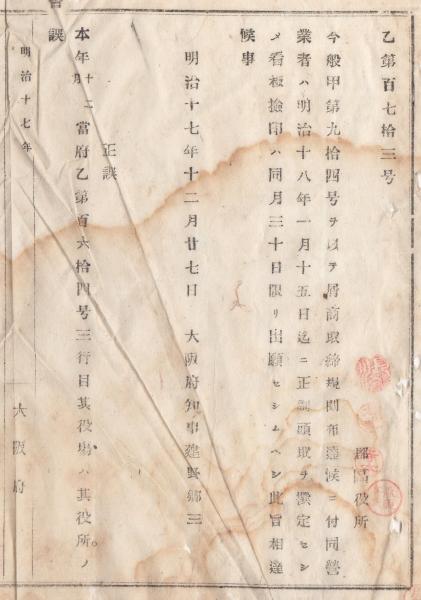 乙第百七拾三号
郡區役所
今般甲第九拾四号ヲ以テ屑商取締規則布達候ニ付同營
業者ハ明治十八年一月十五日迄ニ正副頭取ヲ撰定セシ
メ看板撿印ハ同月三十日限リ出願セシムヘシ此旨相達
候事
明治十七年十二月廿七日 大阪府知事建野郷三
正誤
本年十二月當府乙第百六拾四号三行目其役場ハ其役所ノ
誤
明治十七年 大阪府